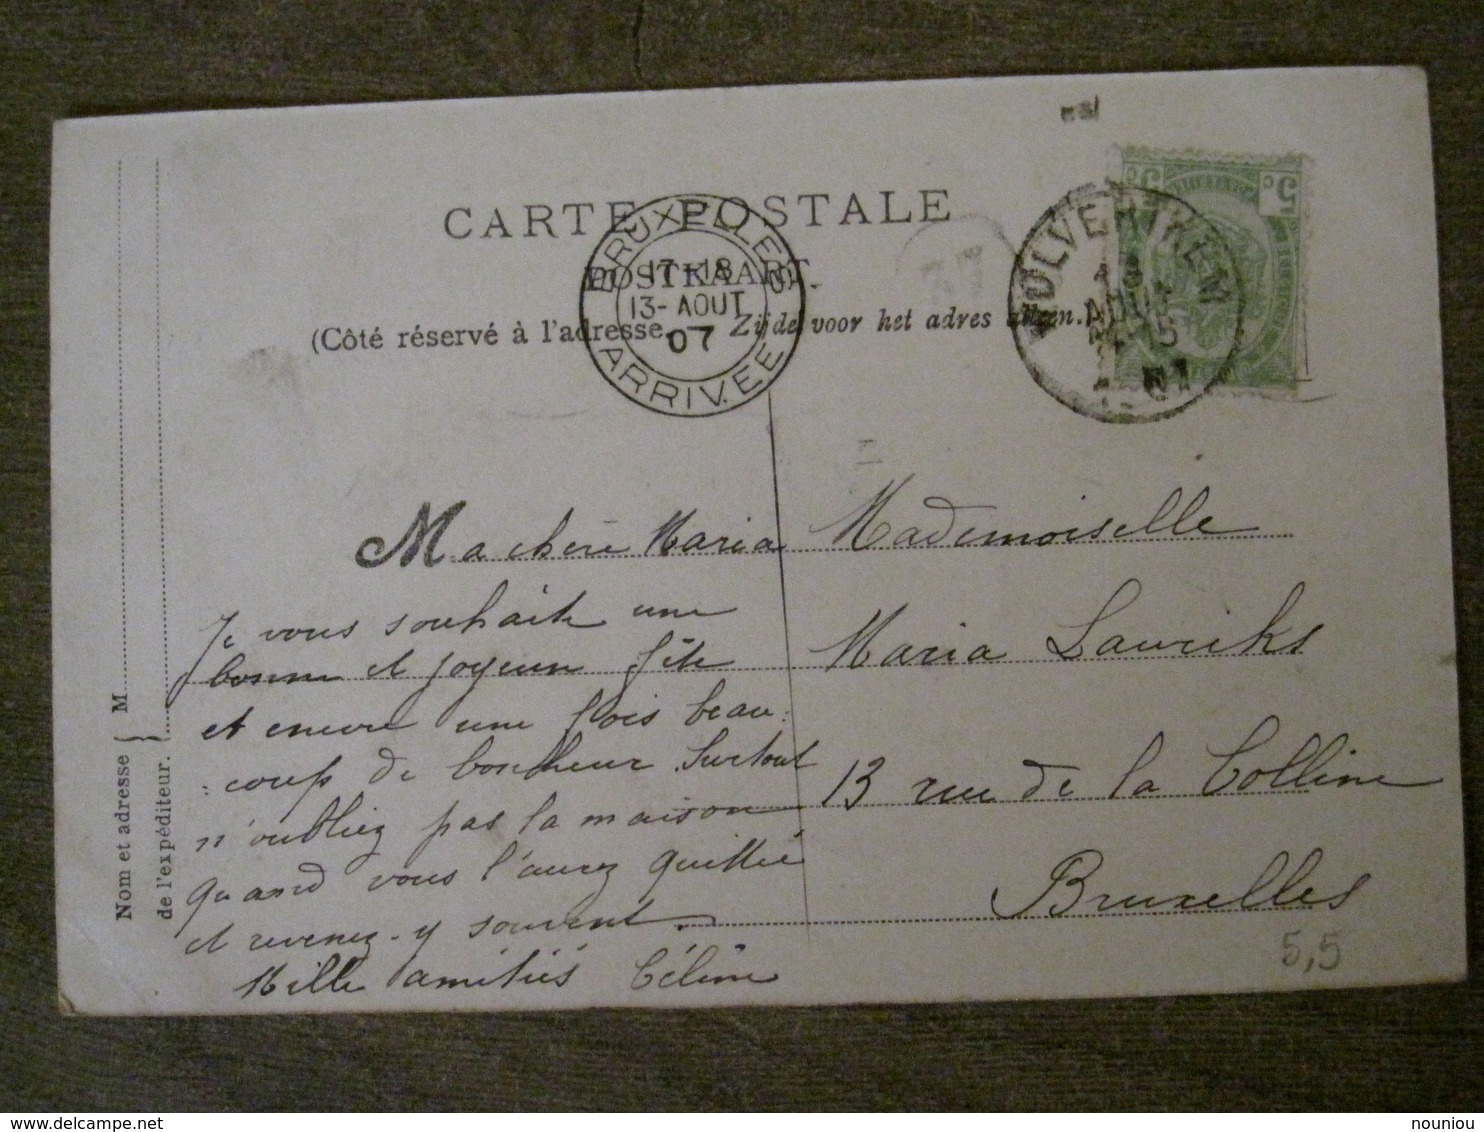 CARTE POSTALE
POSTKAART.
(Côté réservé à l'adresse. Zijde voor het adres alleen.
BRUXELLES
17-18
13-AOUT
07
ARRIVÉE
WOLVERTHEM
AOUT
5 c 5 c
Nom et adresse de l'expéditeur. { M
Ma chère Maria
Je vous souhaite une
bonne et joyeuse fête
et encore une fois beau-
-coup de bonheur. Surtout
n'oubliez pas la maison
quand vous l'aurez quittée
et revenez-y souvent.
Mille amitiés Céline
Mademoiselle
Maria Lauriks
13 rue de la Colline
Bruxelles
5,5
nouniou